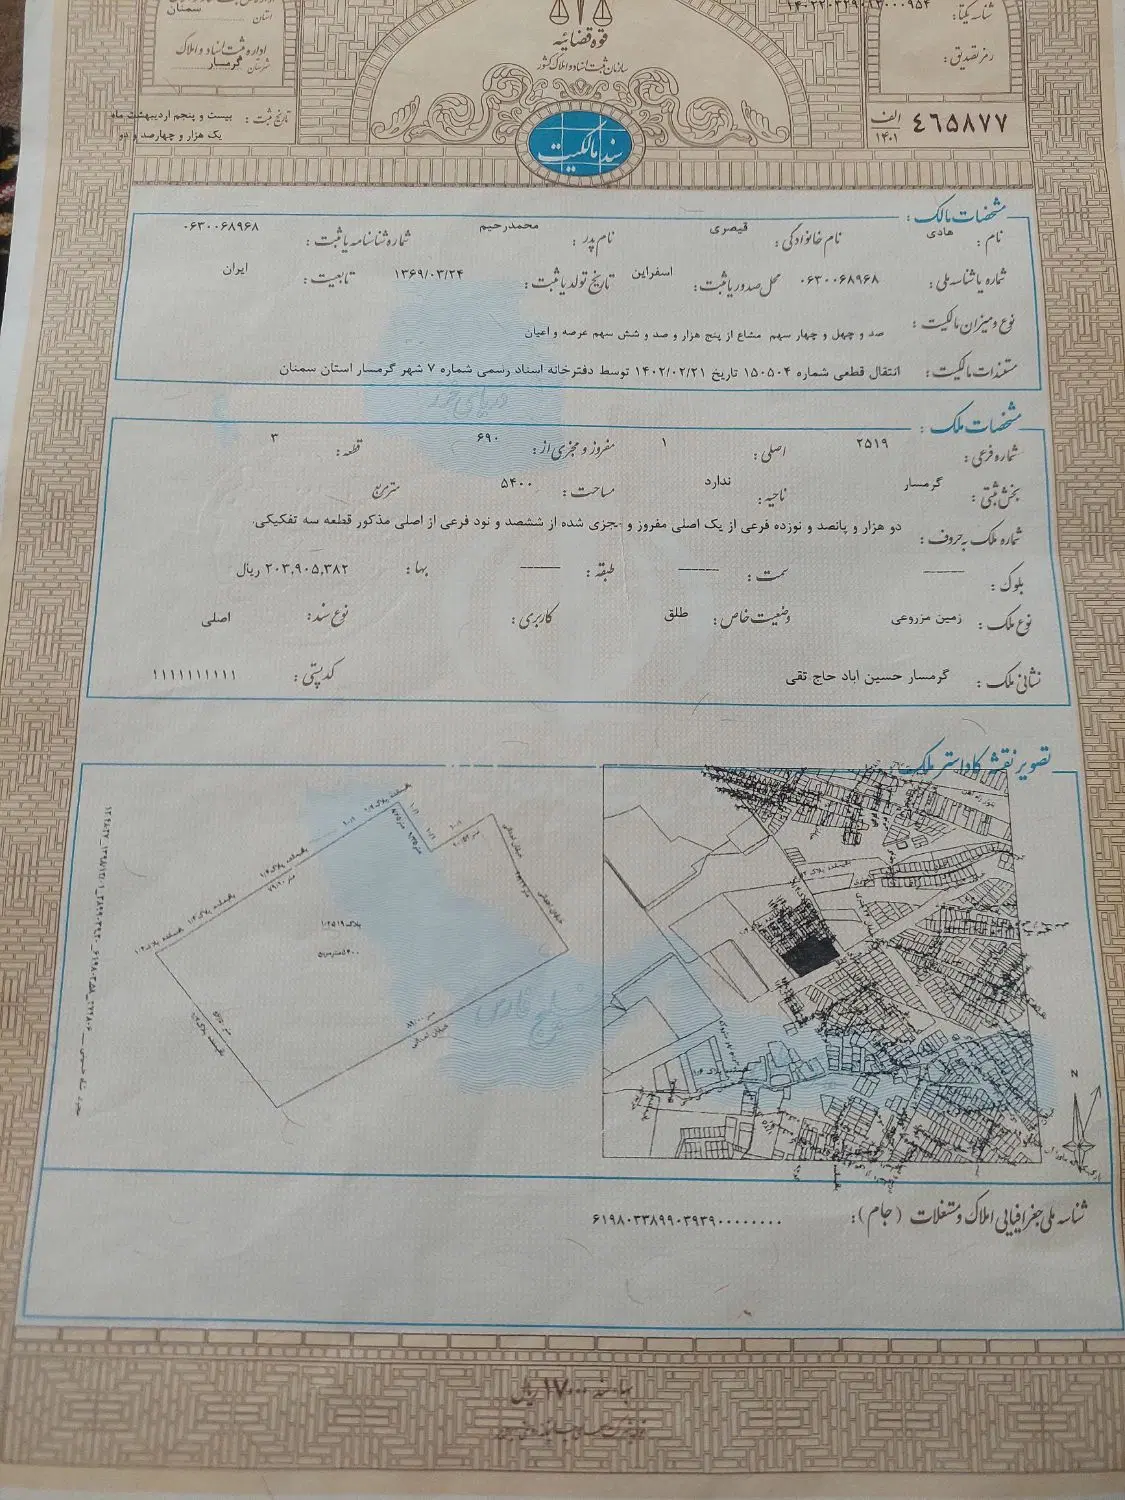 استان سمنان
شناسه یکتا:
قوه قضائیه
اداره ثبت اسناد و املاک
شهرستان گرمسار
سازمان ثبت اسناد و املاک کشور
رمز تصدیق:
تاریخ ثبت: بیست و پنجم اردیبهشت ماه
یک هزار و چهارصد و دو
۴۶۵۸۷۷ الف ۱۴۰۱
سند مالکیت
مشخصات مالک:
نام: هادی نام خانوادگی: قیصری نام پدر: محمدرحیم شماره شناسنامه یا ثبت: ۰۶۳۰۰۶۸۹۶۸
شماره یا شناسه ملی: ۰۶۳۰۰۶۸۹۶۸ محل صدور یا ثبت: اسفراین تاریخ تولد یا ثبت: ۱۳۶۹/۰۳/۲۴ تابعیت: ایران
نوع و میزان مالکیت: صد و چهل و چهار سهم مشاع از پنج هزار و صد و شش سهم عرصه و اعیان
مستندات مالکیت: انتقال قطعی شماره ۱۵۰۵۰۴ تاریخ ۱۴۰۲/۰۲/۲۱ توسط دفترخانه اسناد رسمی شماره ۷ شهر گرمسار استان سمنان
دریای خزر
مشخصات ملک:
شماره فرعی: ۲۵۱۹ اصلی: ۱ مفروز و مجزی از: ۶۹۰ قطعه: ۳
بخش ثبتی: گرمسار ناحیه: ندارد مساحت: ۵۴۰۰ متر مربع
شماره ملک به حروف: دو هزار و پانصد و نوزده فرعی از یک اصلی مفروز و مجزی شده از ششصد و نود فرعی از اصلی مذکور قطعه سه تفکیکی.
بلوک: سمت: طبقه: بها: ۲۰۳,۹۰۵,۳۸۲ ریال
نوع ملک: زمین مزروعی وضعیت خاص: طلق کاربری: نوع سند: اصلی
نشانی ملک: گرمسار حسین اباد حاج تقی کد پستی: ۱۱۱۱۱۱۱۱۱۱
تصویر نقشه کاداستر ملک
خلیج فارس
N
شناسه ملی جغرافیایی املاک و مستغلات (جام): ۶۱۹۸۰۳۳۸۹۹۰۳۹۳۹۰۰۰۰۰۰۰۰
بهاء سند ۱۷۰۰۰ ریال